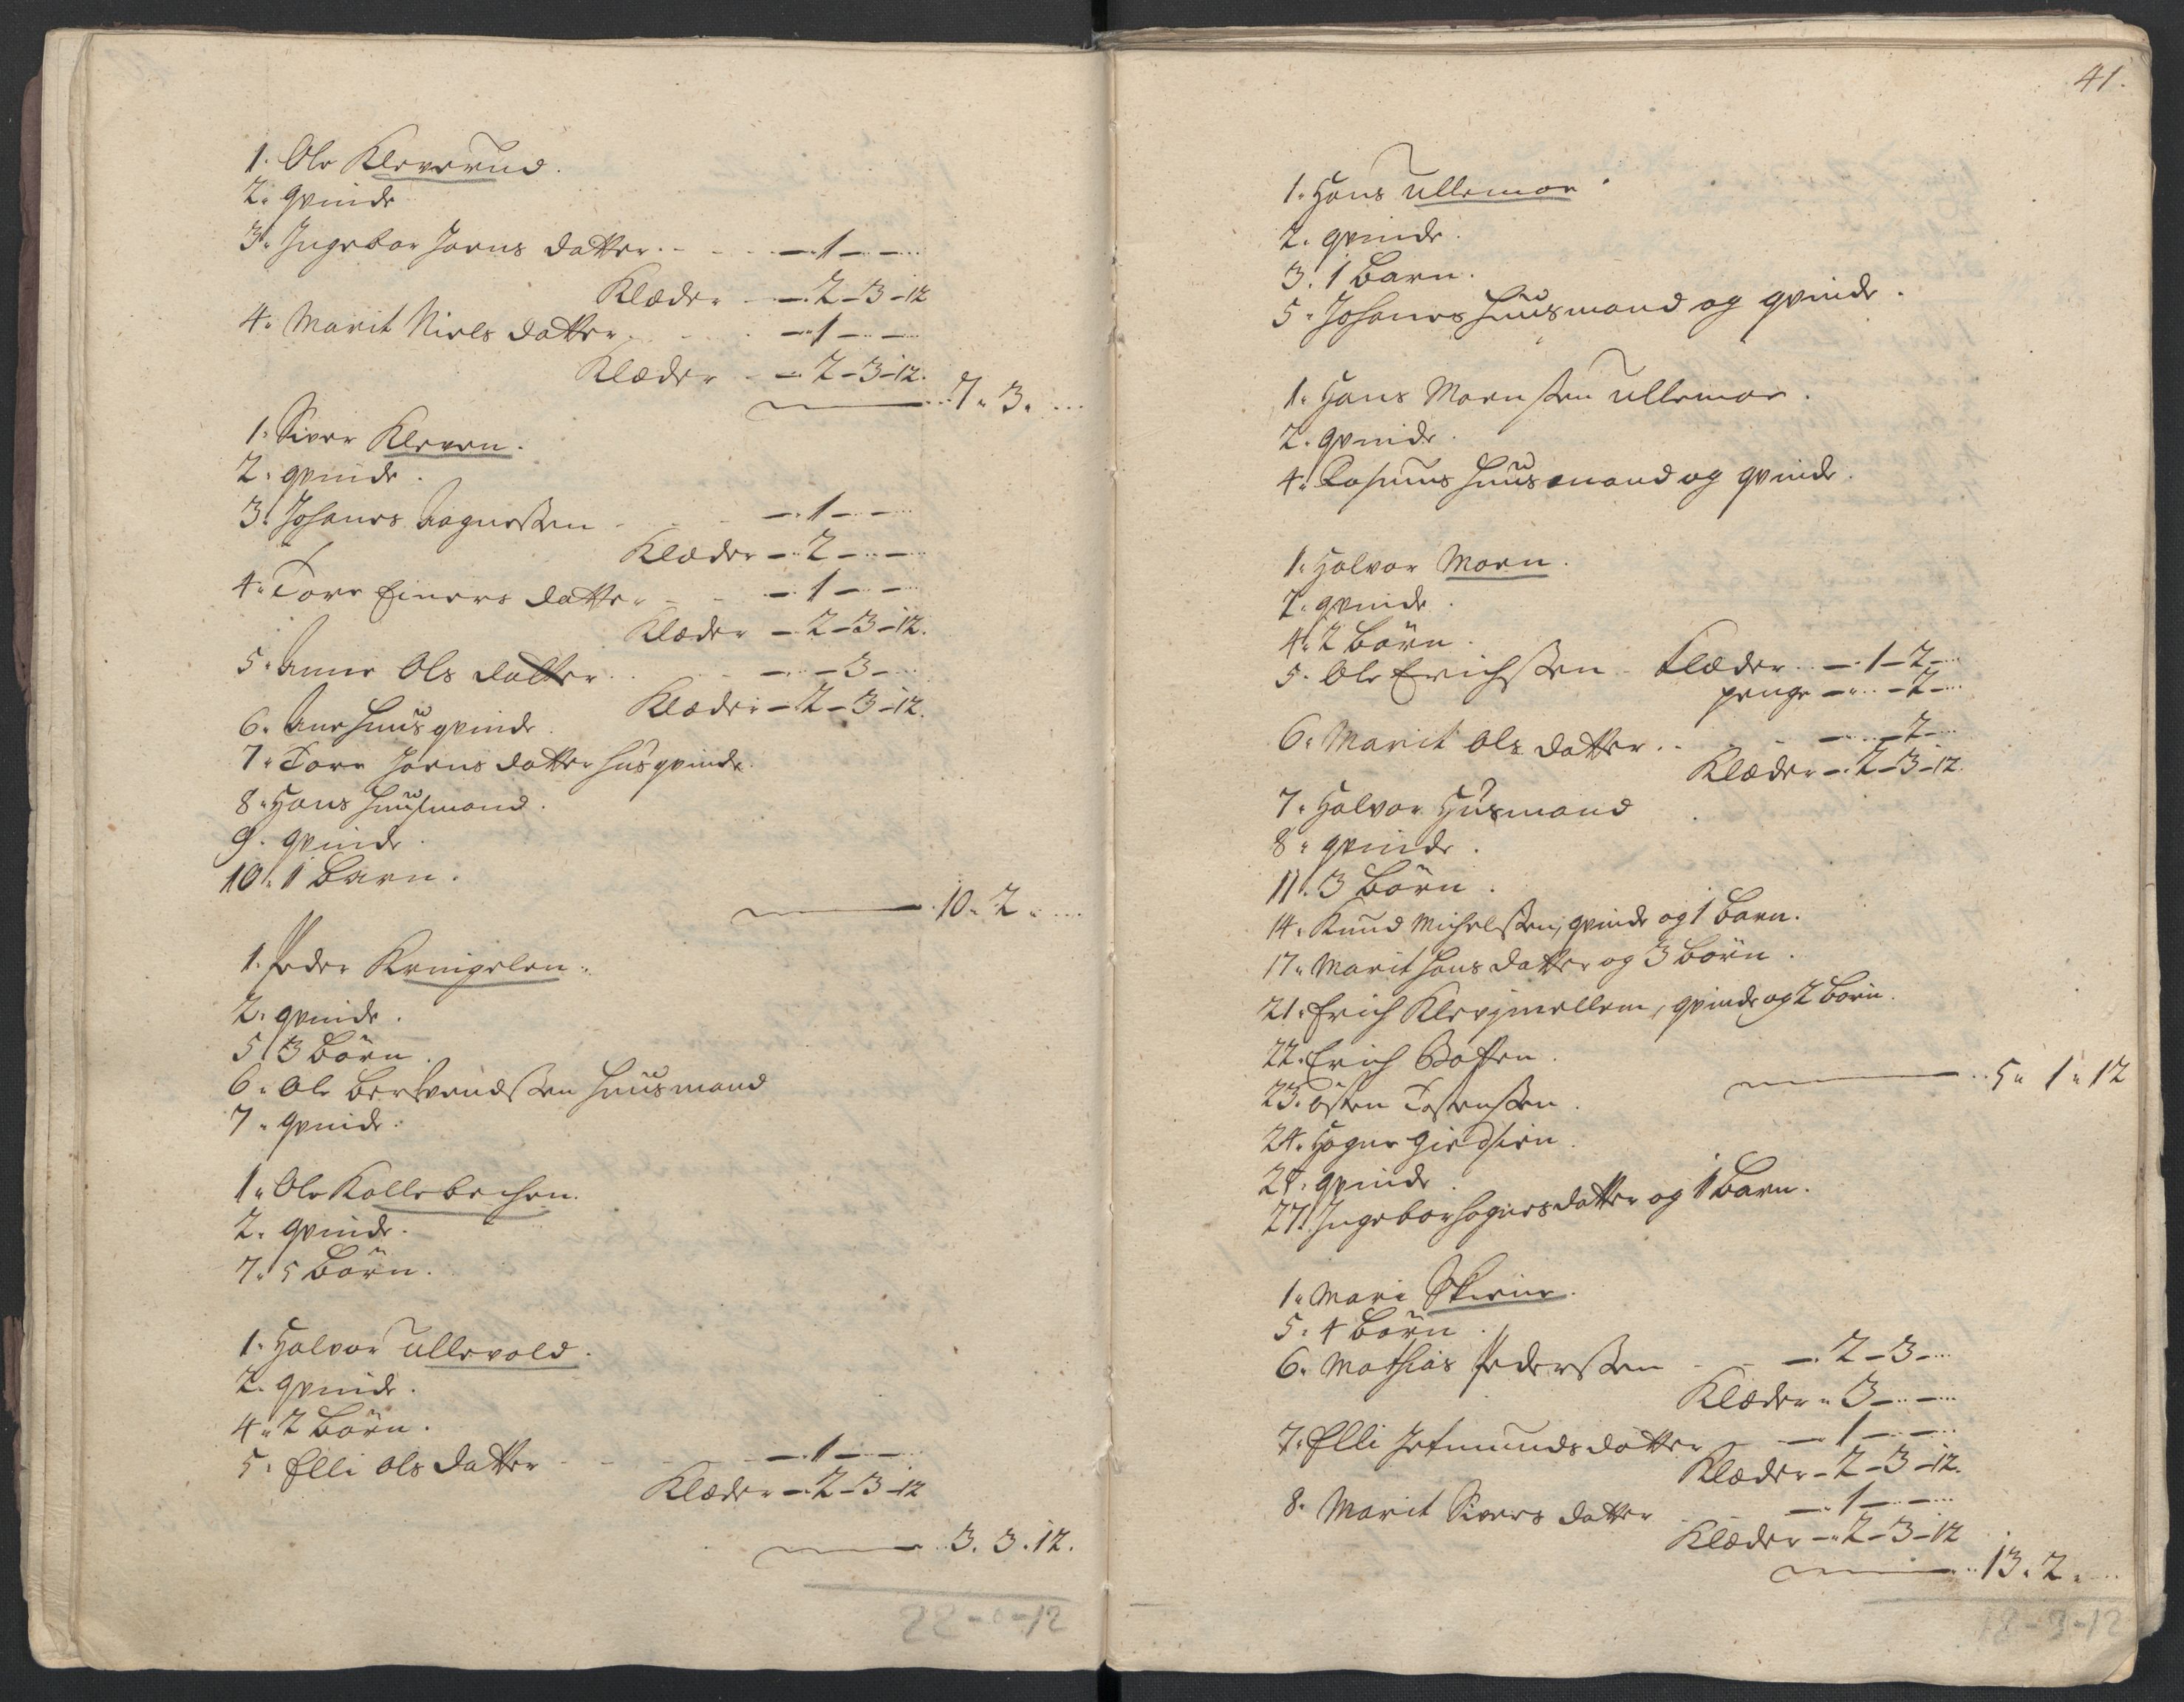 1. Ole Kleverud.
2. qvinde
3. Ingebor Joens datter. - - - 1 - -
Klæder - 2 - 3 - 12
4. Marit Niels datter. - 1 - -
Klæder - 2 - 3 - 12.
7. 3.
1. Siver Kleven.
2. qvinde.
3. Johanes Aagnessen - 1 - -
Klæder - 2 - -
4. Tore Einers datter - 1 - -
Klæder - 2 - 3 - 12.
5. Anne Ols datter - - 3 -
Klæder - 2 - 3 - 12.
6. Ane huus qvinde.
7. Tore Joens datter husqvinde.
8. Hans huusmand.
9. qvinde.
10. 1 Barn.
10. 2.
1. Peder Kringelen.
2. qvinde.
5. 3 Börn.
6. Ole Berthvendssen huusmand
7. qvinde.
1. Ole Kollebechen.
2. qvinde.
7. 5 Börn.
1. Halvor Ullevold.
2. qvinde.
4. 2 Börn.
5. Elli Ols datter - 1 - -
Klæder - 2 - 3 - 12
3. 3. 12.
22-0-12
41.
1. Hans Ullemoer.
2. qvinde.
3. 1 Barn.
5. Johanes huusmand og qvinde.
1. Hans Moensen Ullemoe.
2. qvinde.
4. Rasmus huusmand og qvinde.
1. Halvor Moen.
2. qvinde.
4. 2 Börn.
5. Ole Erichssen Klæder - 1 - 2 -
penge - - 2 -
6. Marit Ols datter. - - 2 -
Klæder - 2 - 3 - 12.
7. Halvor Husmand
8. qvinde.
11. 3 Börn.
14. Knud Michelssen, qvinde og 1 Barn.
17. Marit Hans datter og 3 Börn.
21. Erich Klevjmellem, qvinde og 2 Börn.
22. Erich
23. Östen Tostenssen.
5. 1. 12
24. Hogne
25. qvinde.
27. Ingebor Hognesdatter og 1 Barn.
1. Mari Skrine.
5. 4 Börn.
6. Mathias Pederssen - 2 - 3 -
Klæder - 3 - -
7. Elli Jetmunds datter - 1 - -
Klæder - 2 - 3 - 12.
8. Marit Sivers datter - 1 - -
Klæder - 2 - 3 - 12
13. 2.
18-3-12